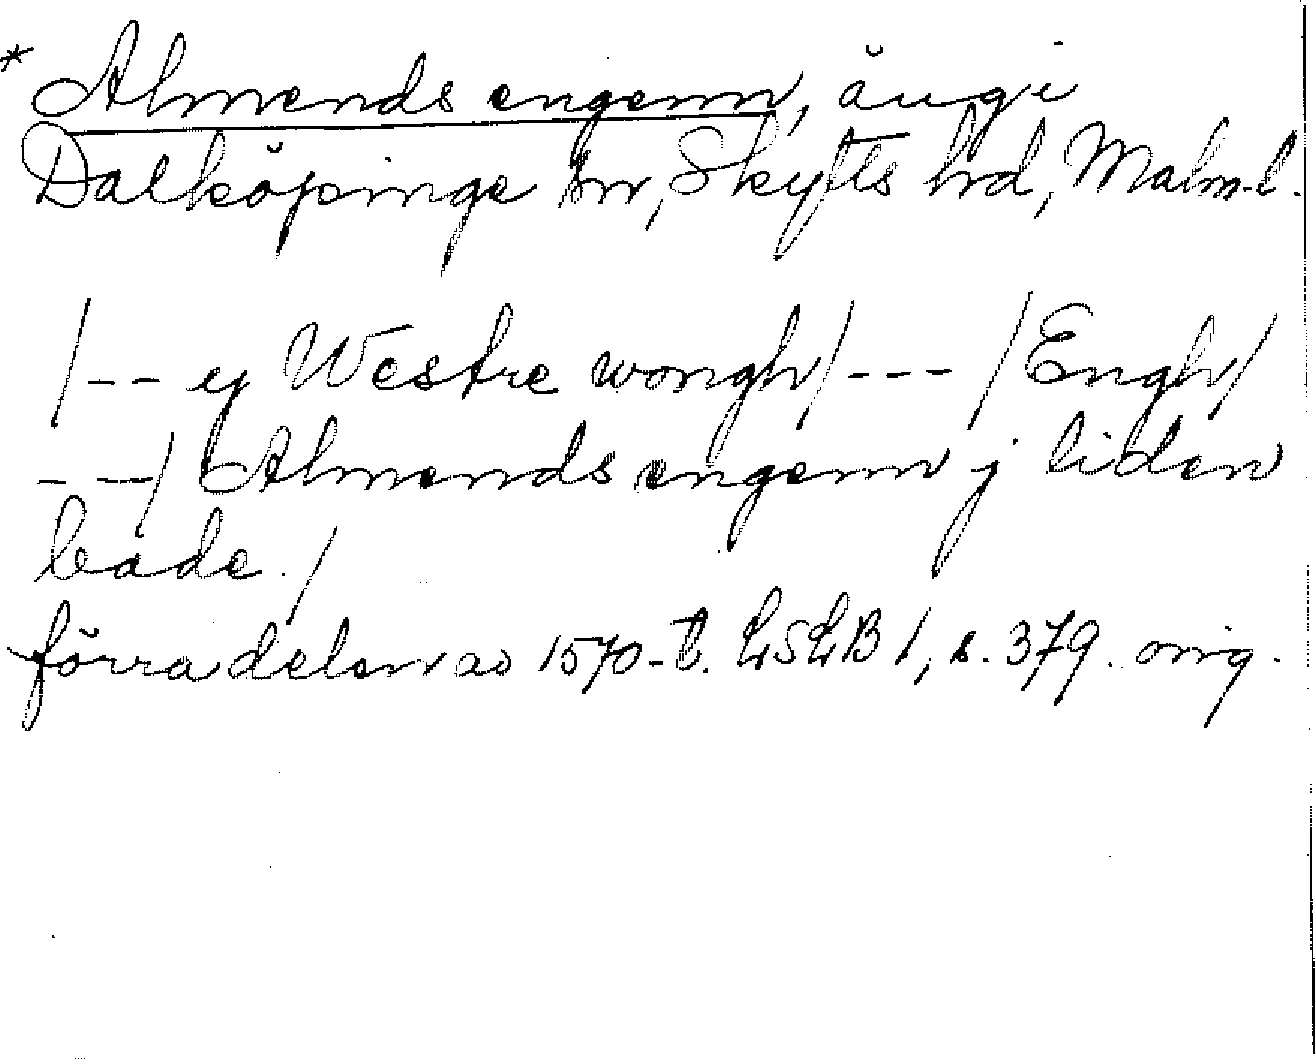 * Almends engenn, äng i
Dalköpinge sn, Skytts hd, Malm.l.
/-- ej Westre wongh/--- /Engh/
- --/ Almends engenn j liden
bade./
förra delen av 1570-t. LSLB 1, s. 379. orig.